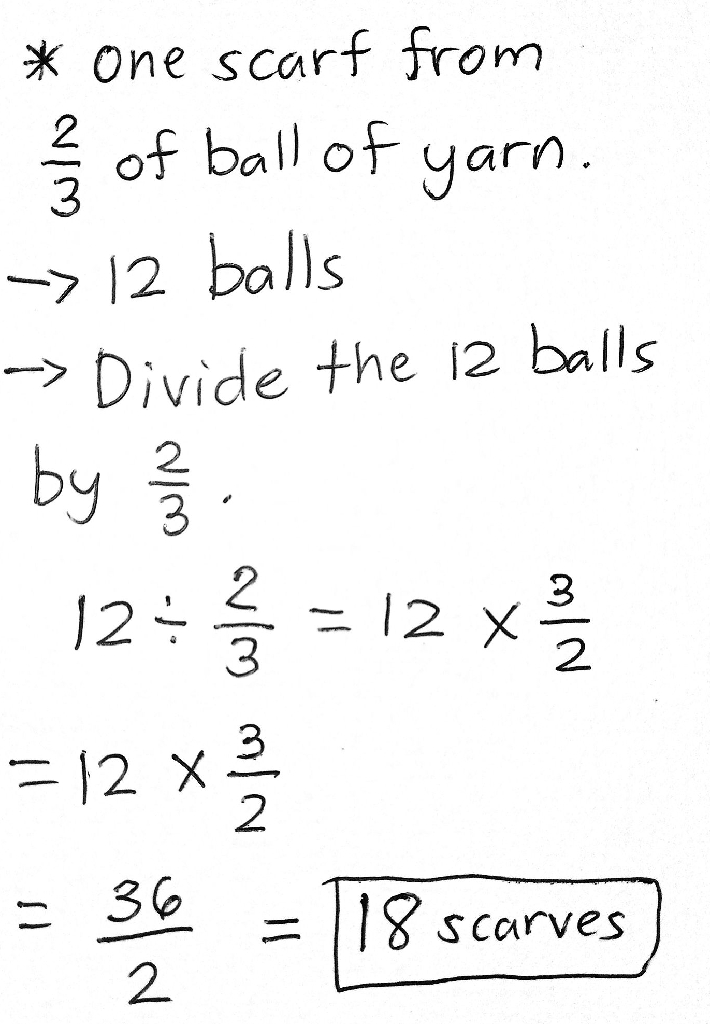 * one scarf from
2/3 of ball of yarn.
-> 12 balls
-> Divide the 12 balls
by 2/3.
12 ÷ 2/3 = 12 × 3/2
= 12 × 3/2
= 36/2 = 18 scarves